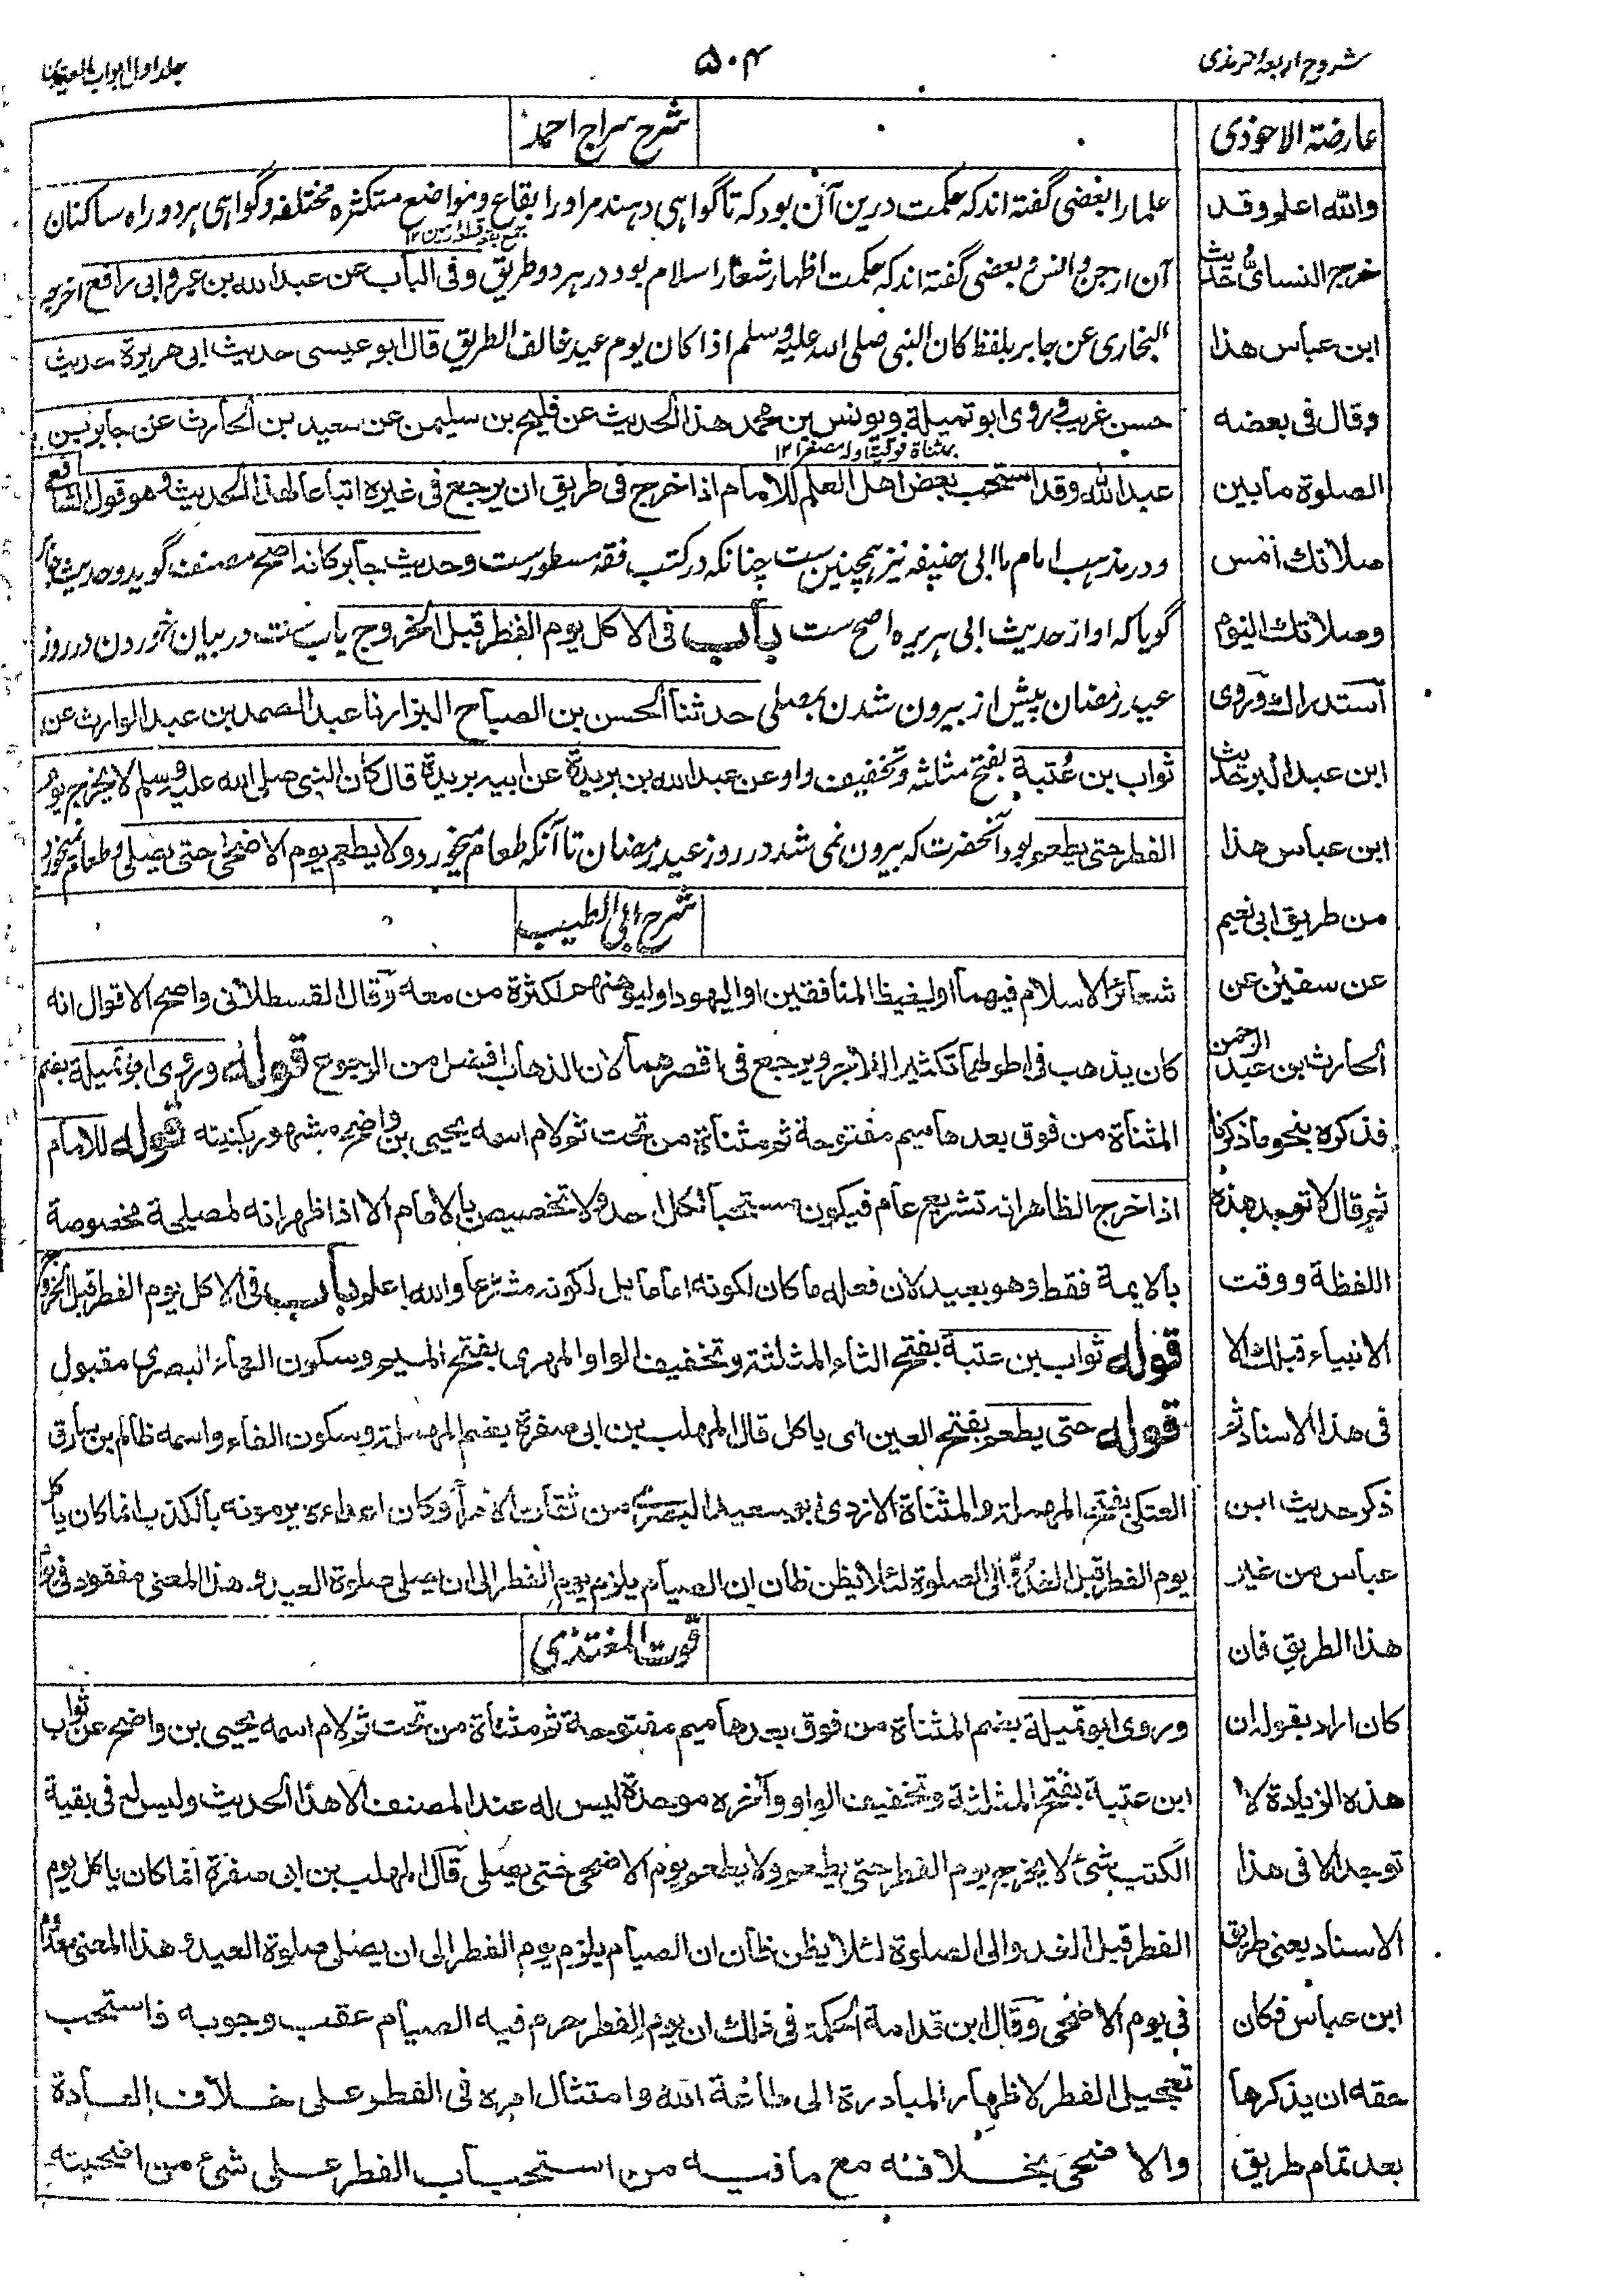 شروح اربعه ترمذی
۵۰۴
جلد اول ابواب العیدین
عارضة الاحوذی
والله اعلم وقد
خرج النسائی حدیث
ابن عباس هذا
وقال فی بعضه
الصلوة ما بین
صلاتك امس
وصلاتك الیوم
استدراك وروی
ابن عبد البر حدیث
ابن عباس هذا
من طریق ابی نعیم
عن سفین عن
الحارث بن عبد الرحمن
فذکره بنحو ما ذکرنا
ثم قال لا توجد هذه
اللفظة ووقت
الانبیاء قبلك الا
فی هذا الاسناد ثم
ذکر حدیث ابن
عباس من غیر
هذا الطریق فان
کان اراد بقوله ان
هذه الزیادة لا
توجد الا فی هذا
الاسناد یعنی طریق
ابن عباس فکان
حقه ان یذکرها
بعد تمام طریق
شرح سراج احمد
علما را بعضی گفته اند که حکمت درین آن بود که تا گواهی دهند مر او را بقاع و مواضع متکثره مختلفه و گواهی هر دو راه ساکنان
آن از جن و انس و بعضی گفته اند که حکمت اظهار شعار اسلام بود در هر دو طریق وفی الباب عن عبد الله بن عمر وابی رافع اخرجه
البخاری عن جابر بلفظ کان النبی صلی الله علیه وسلم اذا کان یوم عید خالف الطریق قال ابو عیسی حدیث ابی هریرة حدیث
حسن غریب وروی ابو تمیلة ویونس بن محمد هذا الحدیث عن فلیح بن سلیمن عن سعید بن الحارث عن جابر بن
بمثناة فوقیة اوله مصغرا ۱۲
عبد الله وقد استحب بعض اهل العلم للامام اذا خرج فی طریق ان یرجع فی غیره اتباعا لهذا الحدیث وهو قول الشافعی
و در مذهب امام ما ابی حنیفه نیز همچنین ست چنانکه در کتب فقه مسطور ست وحدیث جابر کانه اصح مصنف گوید و حدیث جابر
گویا که او از حدیث ابی هریره اصح ست باب فی الاکل یوم الفطر قبل الخروج باب ست در بیان خوردن در روز
عید رمضان پیش از بیرون شدن بمصلی حدثنا الحسن بن الصباح البزار نا عبد الصمد بن عبد الوارث عن
ثواب بن عُتبة بفتح مثلثه وتخفیف واو عن عبد الله بن بریدة عن ابیه بریدة قال کان النبی صلی الله علیه وسلم لا یخرج یوم
الفطر حتی یطعم بود آنحضرت که بیرون نمی شد در روز عید رمضان تا آنکه طعام میخورد ولا یطعم یوم الاضحی حتی یصلی و طعام نمیخورد
شرح ابی الطیب
شعائر الاسلام فیهما او لیغیظ المنافقین او الیهود او لیرهبهم لکثرة من معه وقال القسطلانی واصح الاقوال انه
کان یذهب فی اطولهما تکثیرا للاجر ویرجع فی اقصرهما لان الذهاب افضل من الرجوع قوله وروی ابو تمیلة بضم
المثناة من فوق بعدها میم مفتوحة ثم مثناة من تحت ثم لام اسمه یحیی بن واضح مشهور بکنیته قوله للامام
اذا خرج الظاهر انه تشریع عام فیکون مستحبا لکل احد ولا تخصیص بالامام الا اذا ظهر انه لمصلحة مخصوصة
بالایمة فقط وهو بعید لان فعله ما کان لکونه اماما بل لکونه مشرعا والله اعلم باب فی الاکل یوم الفطر قبل الخروج
قوله ثواب بن عتبة بفتح الثاء المثلثة وتخفیف الواو المهری بفتح المیم وسکون الهاء البصری مقبول
قوله حتی یطعم بفتح العین ای یاکل قال المهلب بن ابی صفرة بضم المهملة وسکون الفاء واسمه ظالم بن سارق
العتکی بفتح المهملة والمثناة الازدی ابو سعید البصری من ثقات الامراء وکان اعداءه یرمونه بالکذب انما کان یاکل
یوم الفطر قبل الغدو الی الصلوة لئلا یظن ظان ان الصیام یلزم یوم الفطر الی ان یصلی صلوة العید وهذا المعنی مفقود فی یوم
قوت المغتذی
وروی ابو تمیلة بضم المثناة من فوق بعدها میم مفتوحة ثم مثناة من تحت ثم لام اسمه یحیی بن واضح عن ثواب
ابن عتبة بفتح المثلثة وتخفیف الواو وآخره موحدة لیس له عند المصنف الا هذا الحدیث ولیس له فی بقیة
الکتب شئ لا یخرج یوم الفطر حتی یطعم ولا یطعم یوم الاضحی حتی یصلی قال المهلب بن ابی صفرة انما کان یاکل یوم
الفطر قبل الغدو الی الصلوة لئلا یظن ظان ان الصیام یلزم یوم الفطر الی ان یصلی صلوة العید وهذا المعنی معدوم
فی یوم الاضحی وقال ابن قدامة الحکمة فی ذلك ان یوم الفطر حرم فیه الصیام عقب وجوبه فاستحب
تعجیل الفطر لاظهار المبادرة الی طاعة الله وامتثال امره فی الفطر علی خلاف العادة
والاضحی بخلافه مع ما فیه من استحباب الفطر علی شئ من اضحیته